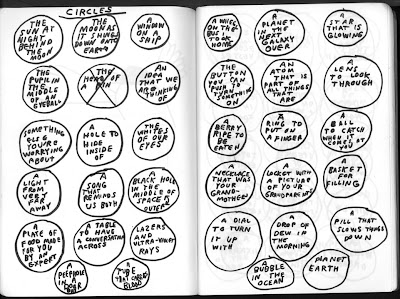 CIRCLES
THE
SUN AT
NIGHT
BEHIND
THE
MOON
THE
MOON AS
IT SHINES
DOWN ONTO
EARTH
A
WINDOW
ON A
SHIP
THE
PUPIL IN
THE
MIDDLE
OF AN
EYEBALL
THE
HEAD OF
A PIN
AN
IDEA
THAT WE
ARE
THINKING
OF
SOMETHING
ELSE
YOU'RE
WORRYING
ABOUT
A
HOLE TO
HIDE
INSIDE
OF
THE
WHITES
OF OUR
EYES
A
LIGHT
FROM
VERY
FAR
AWAY
A
SONG
THAT
REMINDS
US BOTH
A
BLACK HOLE
IN THE
MIDDLE OF
SPACE
OUTER
A
PLATE OF
FOOD MADE
FOR YOU
BY AN
EXPERT
A TABLE
TO HAVE
A CONVERSATION
ACROSS
LAZERS
AND
ULTRA-VIOLET
RAYS
A
PEEPHOLE
IN A
DOOR
A
TUBE
THAT CARRIES
BLOOD
A
WHEEL
ON THE
BUS I
TOOK
HOME
A
PLANET
IN THE
NEXT
GALAXY
OVER
A
STAR
THAT IS
GLOWING
THE
BUTTON
YOU CAN
PUSH TO
TURN
SOMETHING
ON
AN
ATOM
THAT IS
PART OF
ALL THINGS
THAT
ARE
A
LENS
TO LOOK
THROUGH
A
BERRY
RIPE TO
BE
EATEN
A
RING TO
PUT ON
A FINGER
A
BALL
TO CATCH
WHEN IT
COMES AT
YOU
A
NECKLACE
THAT WAS
YOUR
GRAND-
MOTHERS
A
LOCKET WITH
A PICTURE
OF YOUR
GRANDPARENTS
A
BASKET
FOR
FILLING
A DIAL
TO TURN
IT UP
WITH
A
DROP OF
DEW IN
THE
MORNING
A
PILL THAT
SLOWS THINGS
DOWN
A
BUBBLE
IN THE
OCEAN
PLANET
EARTH